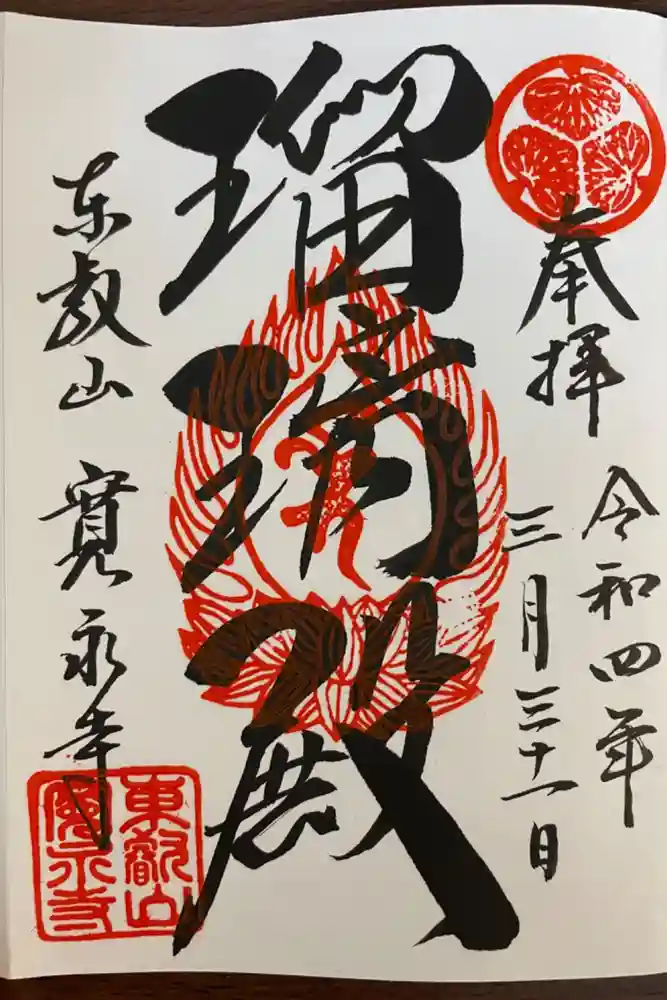 奉拝
令和四年
三月三十一日
瑠璃殿
東叡山 寛永寺
東叡山
寛永寺